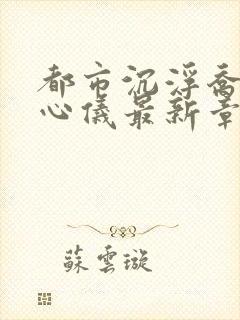 都市沉浮喬
心儀最新章
蘇雲璇